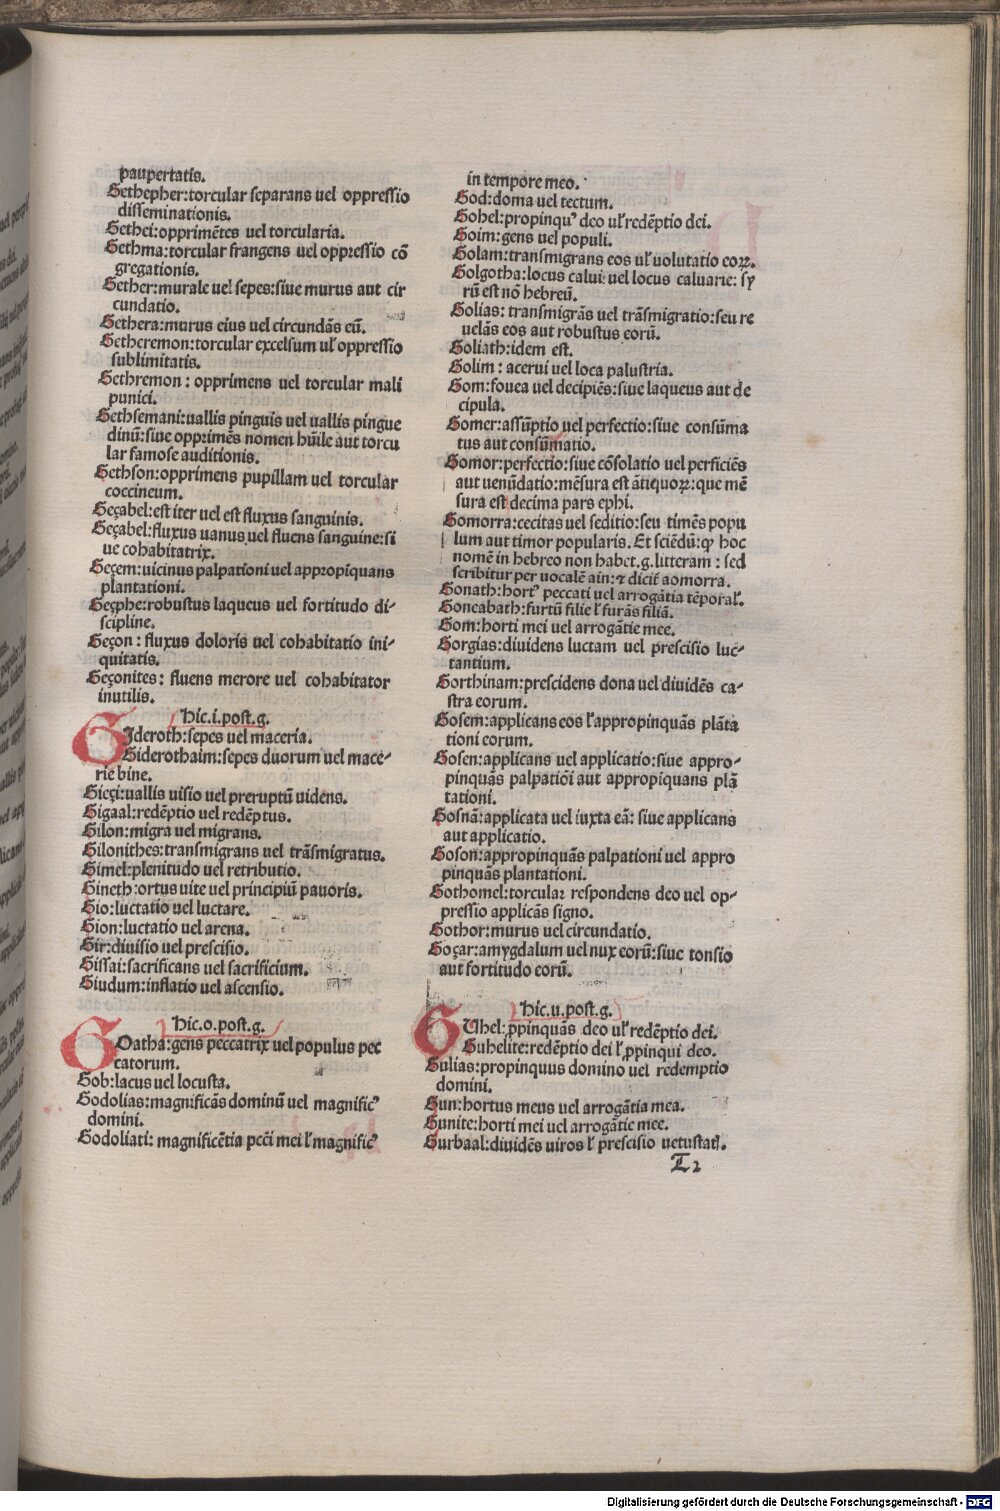 paupertatis.
Gethepher:torcular separans uel oppressio
disseminationis.
Gethei:opprimētes uel torcularia.
Gethma:torcular frangens uel oppressio cō
gregationis.
Gether:murale uel sepes:siue murus aut cir
cundatio.
Gethera:murus eius uel circundās eū.
Getheremon:torcular excelsum uł oppressio
sublimitatis.
Gethremon : opprimens uel torcular mali
punici.
Gethsemani:uallis pinguis uel uallis pingue
dinū:siue opprimēs nomen hūile aut torcu
lar famose auditionis.
Gethson:opprimens pupillam uel torcular
coccineum.
Geçabel:est iter uel est fluxus sanguinis.
Geçabel:fluxus uanus uel fluens sanguine:si
ue cohabitatrix.
Geçem:uicinus palpationi uel appropīquans
plantationi.
Geçphe:robustus laqueus uel fortitudo di-
scipline.
Geçon : fluxus doloris uel cohabitatio ini-
quitatis.
Geçonites : fluens merore uel cohabitator
inutilis.
Hic.i.post.g.
GIderoth:sepes uel maceria.
Giderothaim:sepes duorum uel mace-
rie bine.
Gieçi:uallis uisio uel preruptū uidens.
Gigaal:redēptio uel redēptus.
Gilon:migra uel migrans.
Gilonithes:transmigrans uel trāsmigratus.
Gimel:plenitudo uel retributio.
Gineth:ortus uite uel principiū pauoris.
Gio:luctatio uel luctare.
Gion:luctatio uel arena.
Gir:diuisio uel prescisio.
Gissai:sacrificans uel sacrificium.
Giudum:inflatio uel ascensio.
Hic.o.post.g.
GOatha:gens peccatrix uel populus pec
catorum.
Gob:lacus uel locusta.
Godolias:magnificās dominū uel magnificꝰ
domini.
Godoliati: magnificētia pcc̄i mei ł magnificꝰ
in tempore meo.
God:doma uel tectum.
Gohel:propinquꝰ deo uł redēptio dei.
Goim:gens uel populi.
Golam:transmigrans eos uł uolutatio eoꝝ.
Golgotha:locus calui: uel locus caluarie: sy
rū est nō hebreū.
Golias: transmigrās uel trāsmigratio:seu re
uelās eos aut robustus eorū.
Goliath:idem est.
Golim : acerui uel loca palustria.
Gom:fouea uel decipiēs:siue laqueus aut de
cipula.
Gomer:assūptio uel perfectio:siue consūma
tus aut consūmatio.
Gomor:perfectio:siue cōsolatio uel perficiēs
aut uenūdatio:mēsura est ātiquoꝝ:que mē
sura est decima pars ephi.
Gomorra:cecitas uel seditio:seu timēs popu
lum aut timor popularis. Et sciēdū:ꝙ hoc
nomē in hebreo non habet.g.litteram : sed
scribitur per uocalē ain:⁊ dicit̄ aomorra.
Gonath:hortꝰ peccati uel arrogātia tēporał.
Goneabath:furtū filie ł furās filiā.
Gom:horti mei uel arrogātie mee.
Gorgias:diuidens luctam uel prescisio luc-
tantium.
Gorthinam:prescidens dona uel diuidēs ca-
stra eorum.
Gosem:applicans eos ł appropinquās plāta
tioni eorum.
Gosen:applicans uel applicatio:siue appro-
pinquās palpatiōi aut appropiquans plā
tationi.
Gosnā:applicata uel iuxta eā: siue applicans
aut applicatio.
Goson:appropinquās palpationi uel appro
pinquās plantationi.
Gothomel:torcular respondens deo uel op-
pressio applicās signo.
Gothor:murus uel circundatio.
Goçar:amygdalum uel nux eorū:siue tonsio
aut fortitudo eorū.
Hic.u.post.g.
GUhel:ꝓpinquās deo uł redēptio dei.
Guhelite:redēptio dei ł ꝓpinqui deo.
Gulias:propinquus domino uel redemptio
domini.
Gun:hortus meus uel arrogātia mea.
Gunite:horti mei uel arrogātie mee.
Gurbaal:diuidēs uiros ł prescisio uetustat̄.
T 2
Digitalisierung gefördert durch die Deutsche Forschungsgemeinschaft - DFG